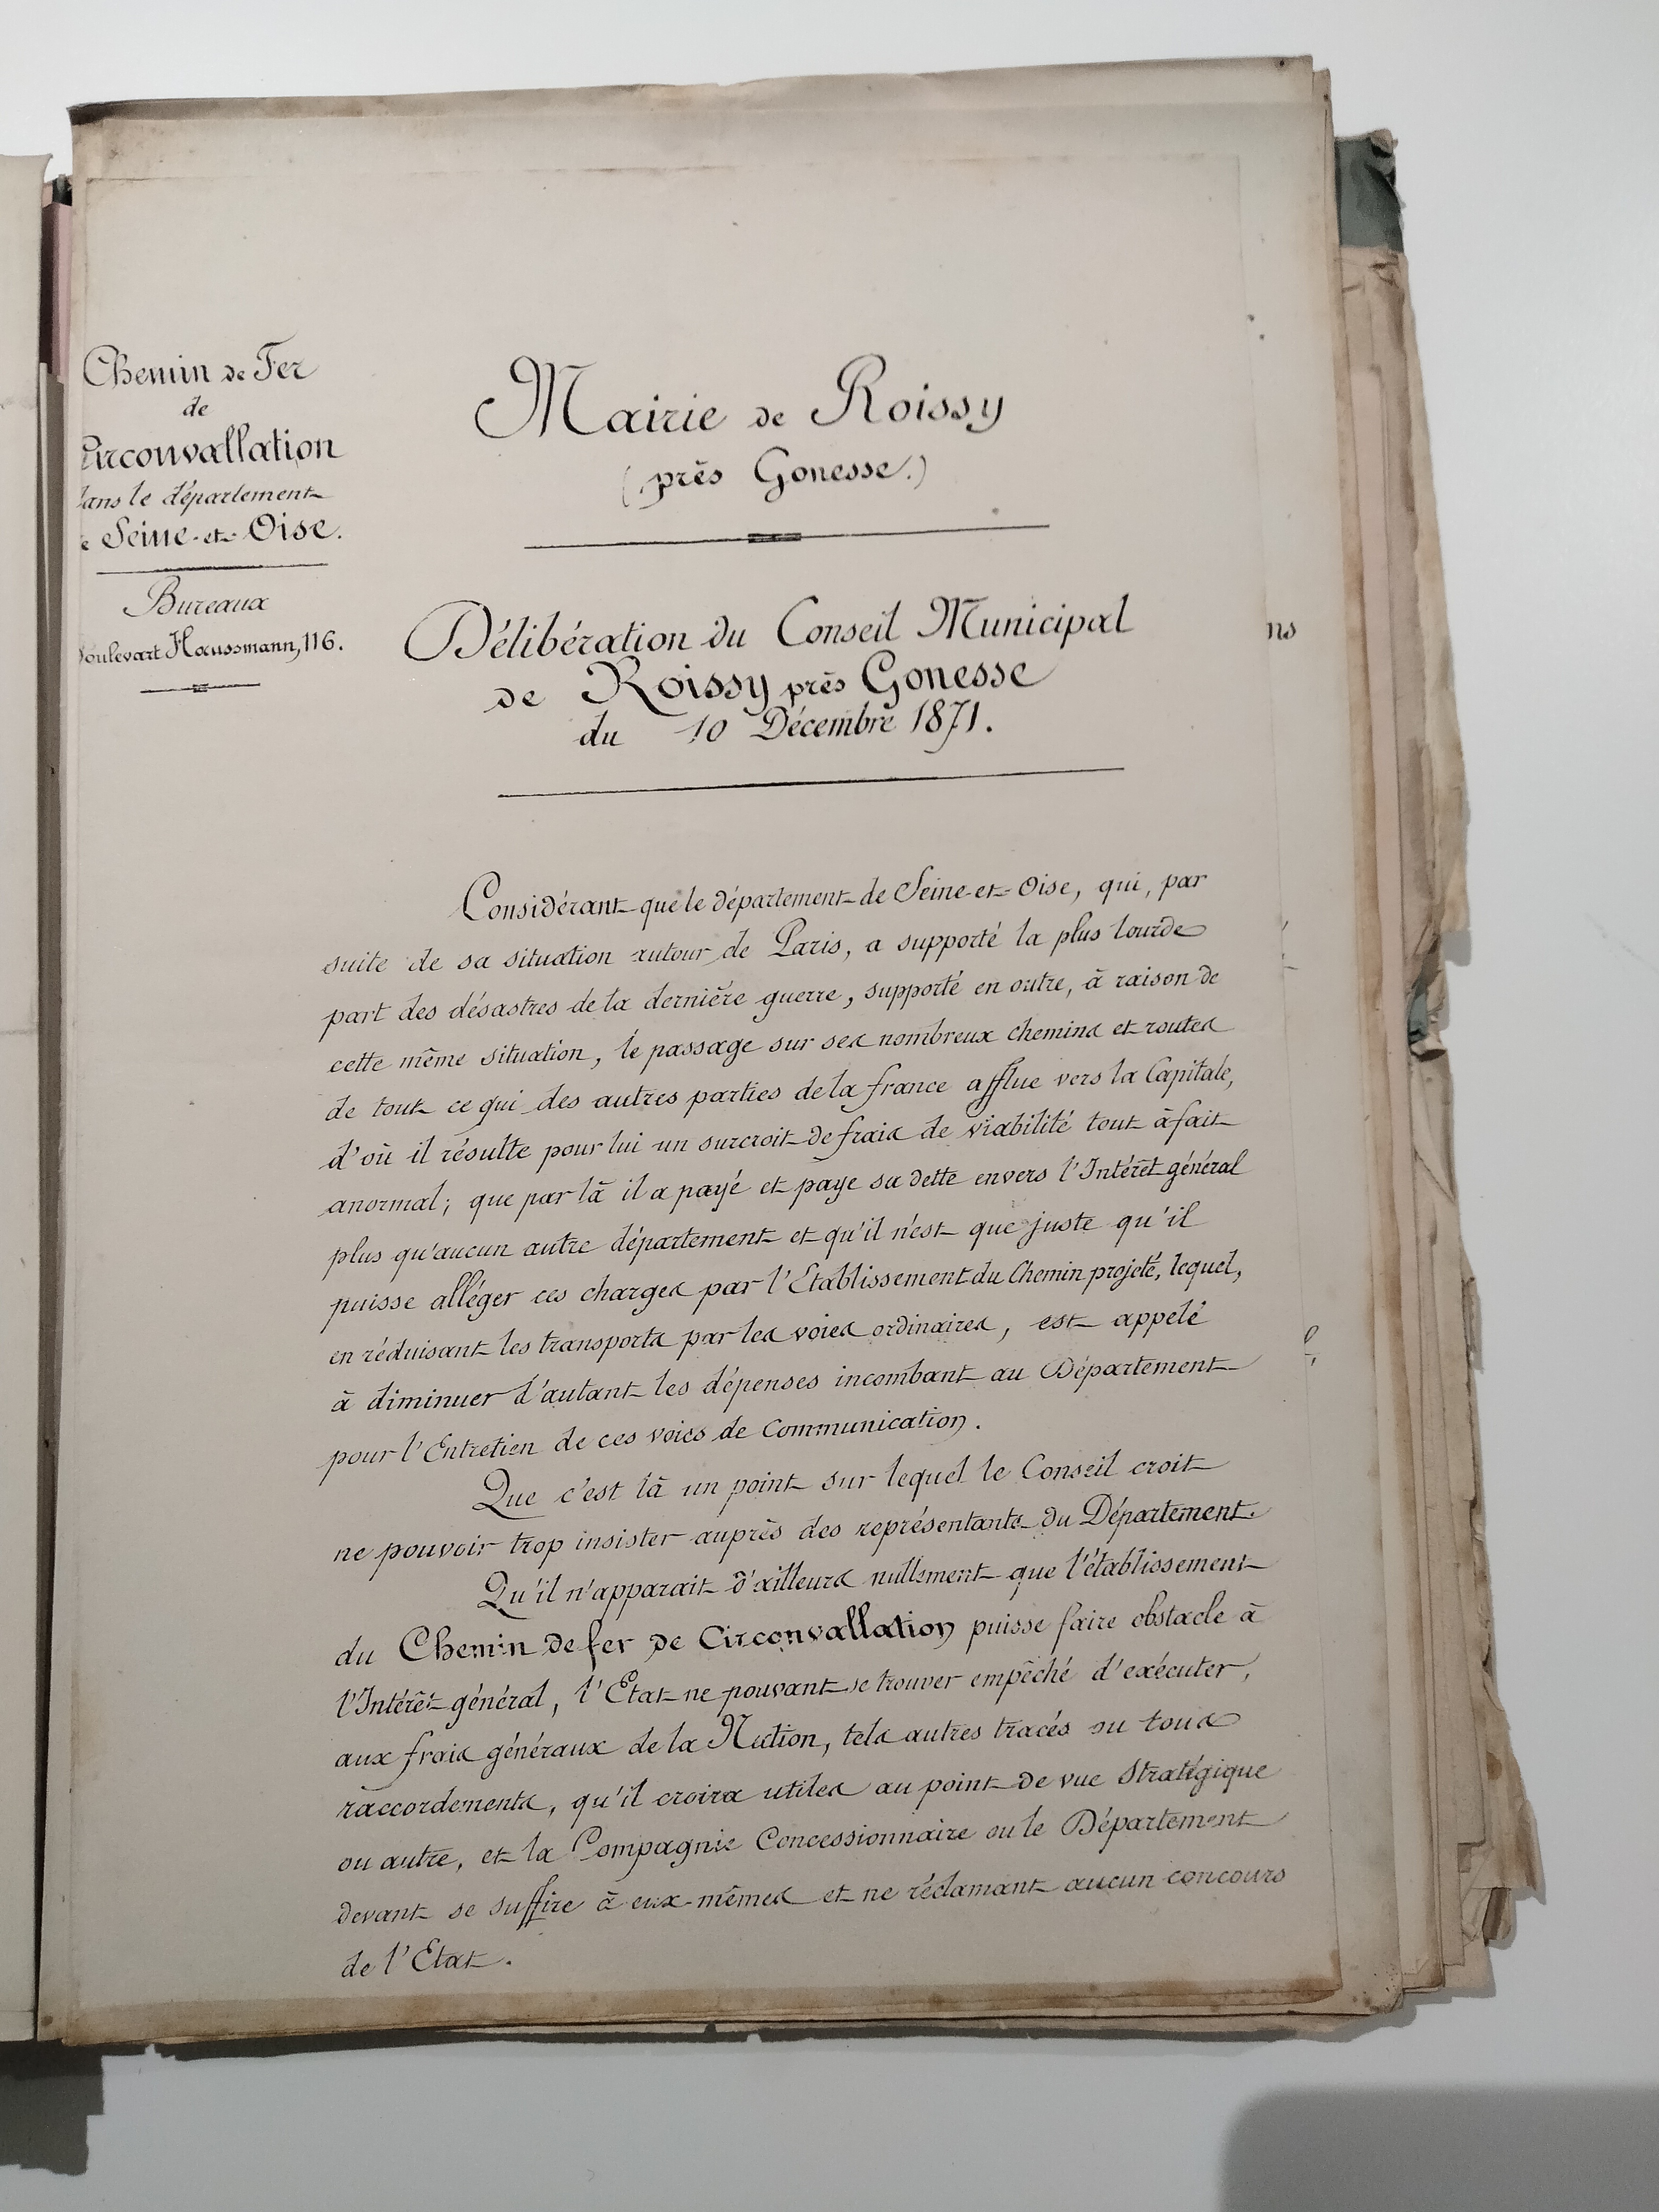 Chemin de Fer
de
Circonvallation
dans le département
de Seine-et-Oise.
Bureaux
Boulevart Haussmann, 116.
Mairie de Roissy
(près Gonesse.)
Délibération du Conseil Municipal
de Roissy près Gonesse
du 10 Décembre 1871.
ns
Considérant que le département de Seine-et-Oise, qui, par
suite de sa situation autour de Paris, a supporté la plus lourde
part des désastres de la dernière guerre, supporté en outre, à raison de
cette même situation, le passage sur ses nombreux chemins et routes
de tout ce qui des autres parties de la france afflue vers la Capitale,
d'où il résulte pour lui un surcroit de frais de viabilité tout à fait
anormal; que par là il a payé et paye sa dette envers l'Intérêt général
plus qu'aucun autre département et qu'il n'est que juste qu'il
puisse alléger ces charges par l'Etablissement du Chemin projeté, lequel,
en réduisant les transports par les voies ordinaires, est appelé
à diminuer d'autant les dépenses incombant au Département
pour l'Entretien de ces voies de Communication.
Que c'est là un point sur lequel le Conseil croit
ne pouvoir trop insister auprès des représentants du Département.
Qu'il n'apparait d'ailleurs nullement que l'établissement
du Chemin de fer de Circonvallation puisse faire obstacle à
l'Intérêt général, l'Etat ne pouvant se trouver empêché d'exécuter,
aux frais généraux de la Nation, tels autres tracés ou tous
raccordements, qu'il croira utiles au point de vue Stratégique
ou autre, et la Compagnie Concessionnaire ou le Département
devant se suffire à eux-mêmes et ne réclamant aucun concours
de l'Etat.